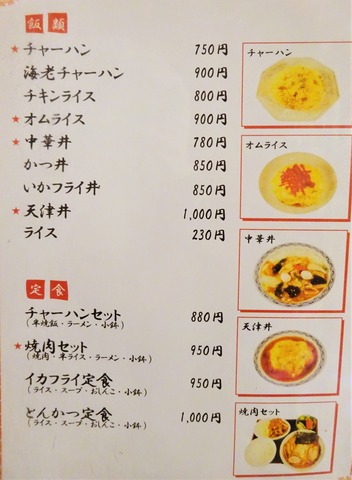 飯類
★チャーハン 750円
海老チャーハン 900円
チキンライス 800円
★オムライス 900円
★中華丼 780円
かつ丼 850円
いかフライ丼 850円
★天津丼 1,000円
ライス 230円
定食
チャーハンセット 880円
(半焼飯・ラーメン・小鉢)
★焼肉セット 950円
(焼肉・半ライス・ラーメン・小鉢)
イカフライ定食 950円
(ライス・スープ・おしんこ・小鉢)
とんかつ定食 1,000円
(ライス・スープ・おしんこ・小鉢)
チャーハン
オムライス
中華丼
天津丼
焼肉セット